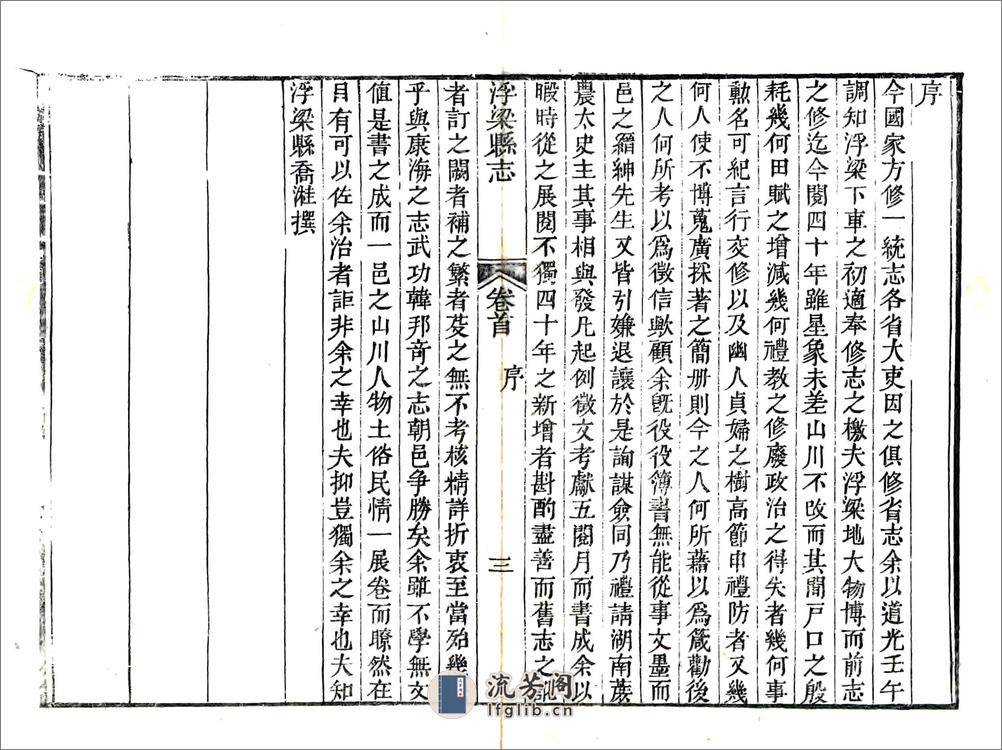 序
今國家方修一統志各省大吏因之俱修省志余以道光壬午
調知浮梁下車之初適奉修志之檄夫浮梁地大物博而前志
之修迄今閱四十年雖星象未差山川不改而其間戸口之殷
耗幾何田賦之增減幾何禮教之修廢政治之得失者幾何事
勳名可紀言行交修以及幽人貞婦之樹高節申禮防者又幾
何人使不博蒐廣採著之簡册則今之人何所藉以爲箴勸後
之人何所考以爲徵信歟顧余旣役役簿書無能從事文墨而
邑之縉紳先生又皆引嫌退讓於是詢謀僉同乃禮請湖南蔗
農太史主其事相與發凡起例徵文考獻五閱月而書成余以
暇時從之展閱不獨四十年之新增者斟酌盡善而舊志之
浮梁縣志
卷首
序
三
者訂之闕者補之繁者芟之無不考核精詳折衷至當殆幾
乎與康海之志武功韓邦竒之志朝邑争勝矣余雖不學無文
值是書之成而一邑之山川人物土俗民情一展卷而瞭然在
目有可以佐余治者詎非余之幸也夫抑豈獨余之幸也夫知
浮梁縣喬溎撰
流芳阁
lfglib.cn